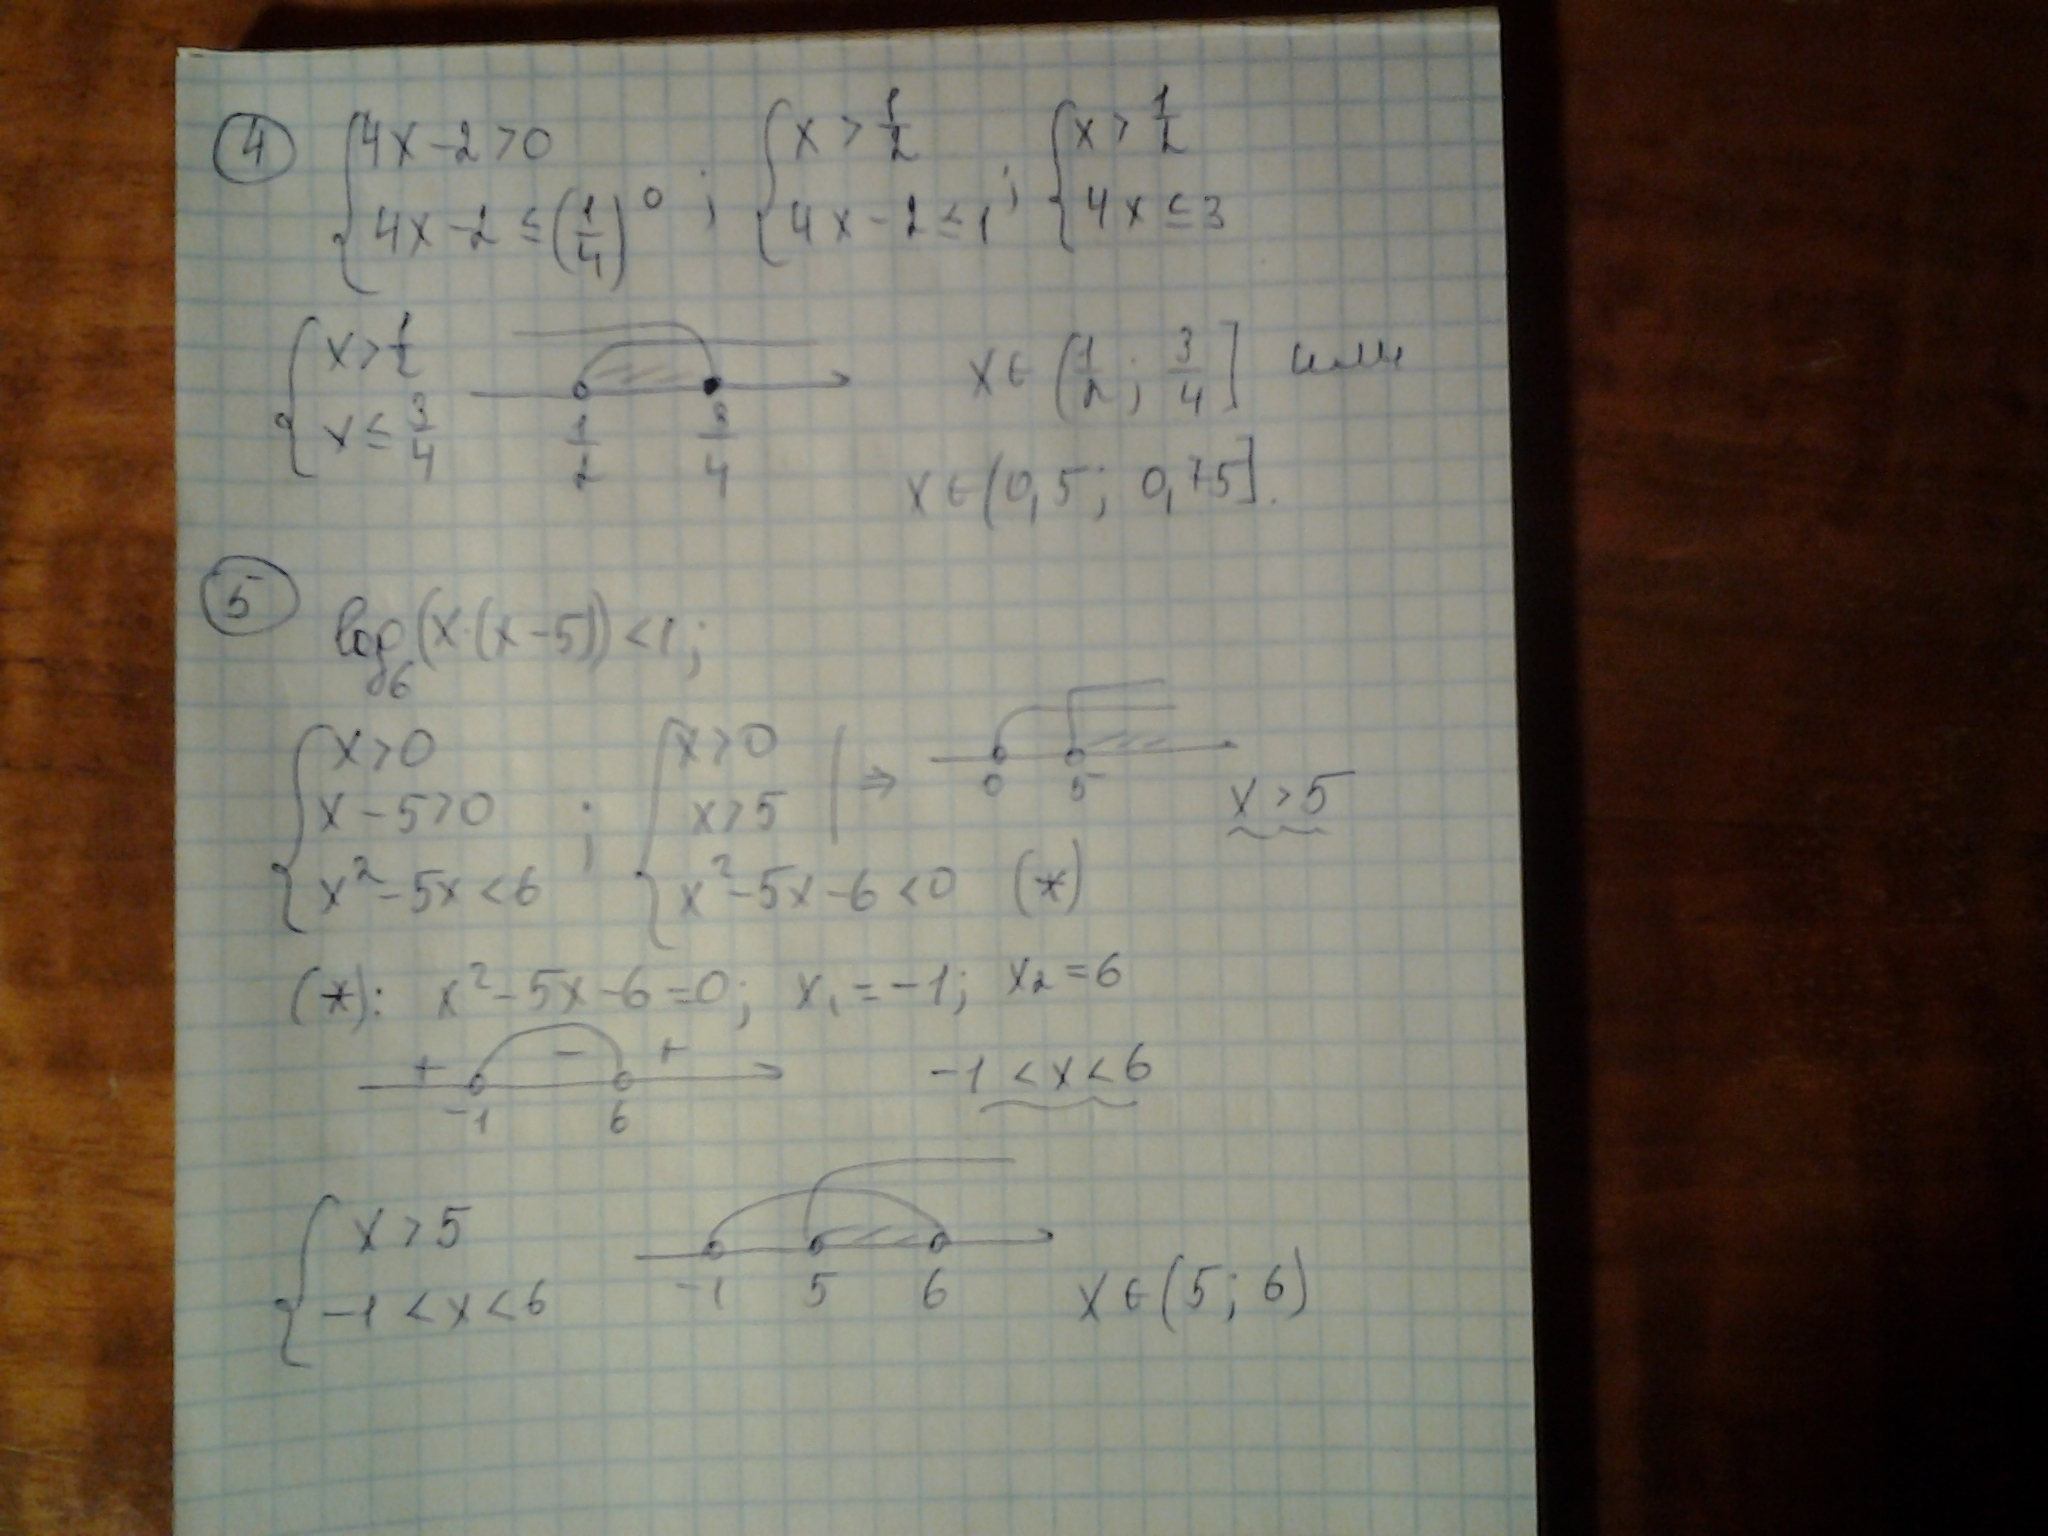 ④ {4x-2>0 {x>1/2 {x>1/2
{4x-2≤(1/4)^0 ; {4x-2≤1 ; {4x≤3
{x>1/2
{x≤3/4 1/2 3/4 x∈(1/2; 3/4] или
x∈(0,5; 0,75].
⑤ log₆(x·(x-5))<1;
{x>0 {x>0
{x-5>0 ; {x>5 |⇒ 0 5 x>5
{x²-5x<6 {x²-5x-6<0 (*)
(*): x²-5x-6=0; x₁=-1; x₂=6
+ - +
-1 6 -1<x<6
{x>5
{-1<x<6 -1 5 6 x∈(5; 6)